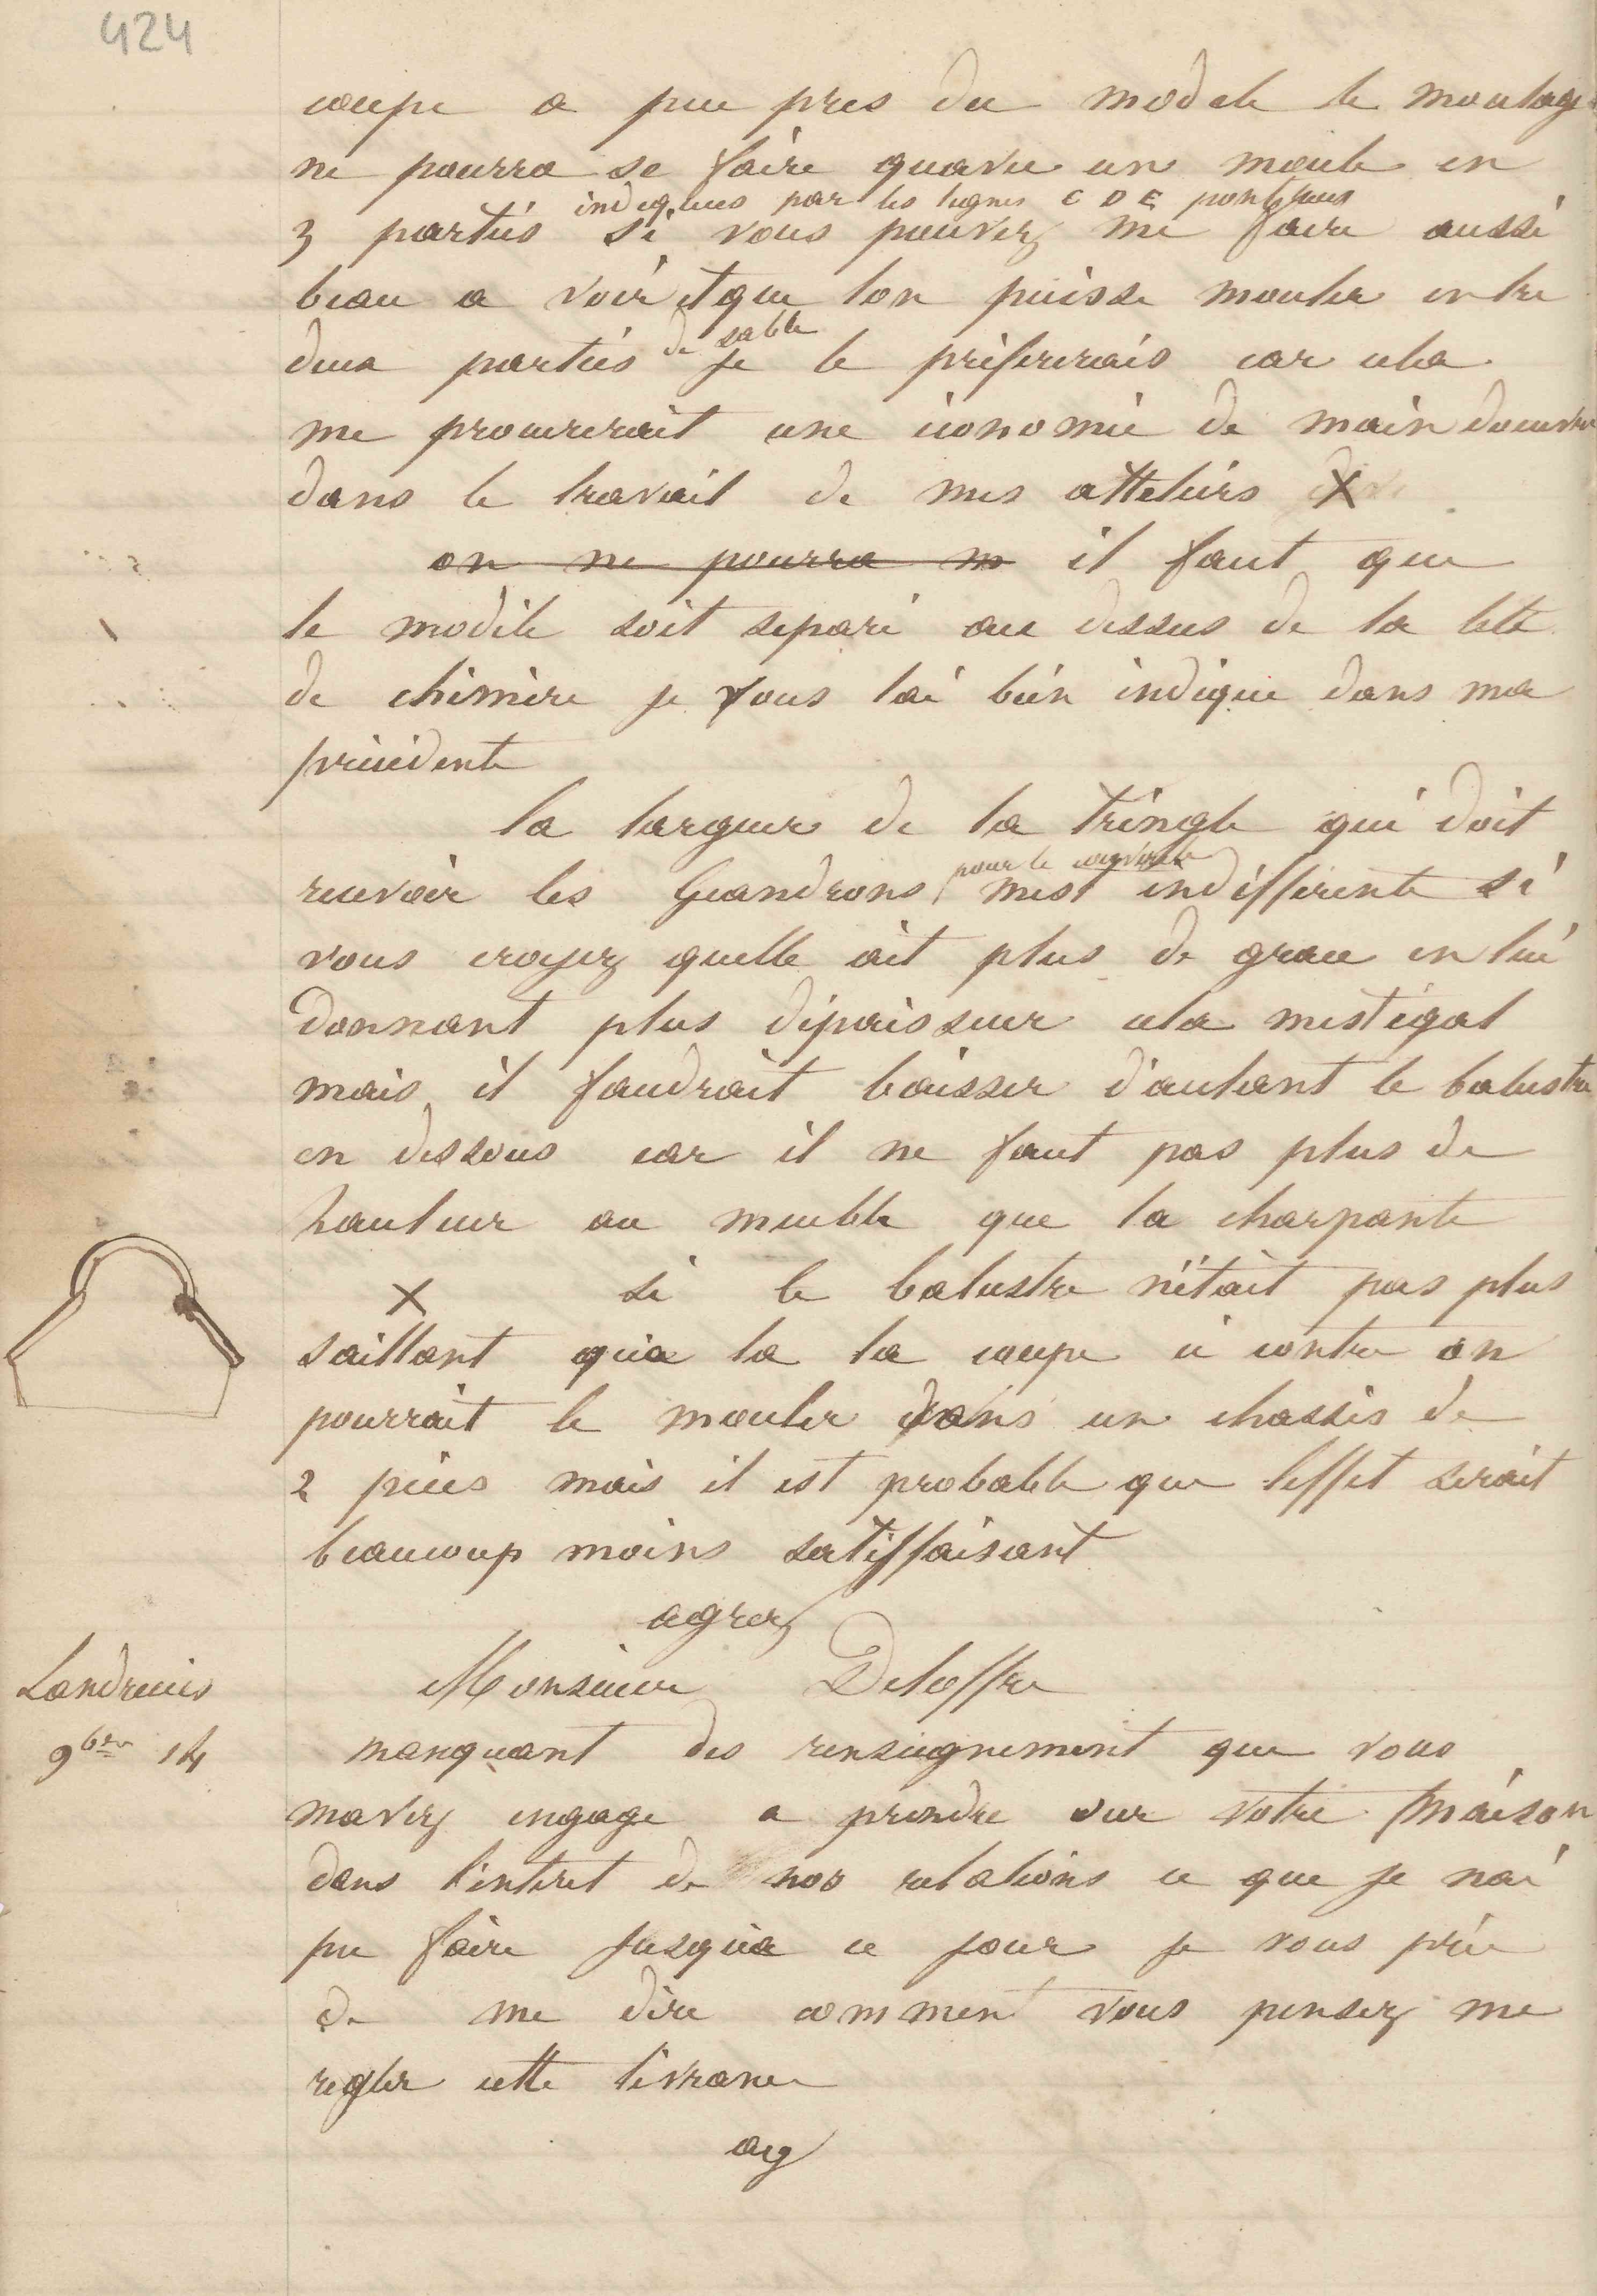 424
coupe a peu pres du modele le moulage
ne pourra se faire quavec un moule en
indiquees par les lignes C D E
3 parties si vous pouvez me faire aussi
beau a voir et que lon puisse mouler entre
de sable
deux parties je le prefererais car cela
me procurerait une économie de main doeuvre
dans le travail de mes atteliers X
on ne pourra m il faut que
le modéle soit separé au dessus de la tête
de chimère je vous lai bien indique dans ma
précédente
la largeur de la tringle qui doit
pour le couvercle
recevoir les Guandrons mest indifferente si
vous croyez quelle ait plus de grace en lui
donnant plus dépaisseur cela mest égal
mais il faudrait baisser d'autant le balustre
en dessous car il ne faut pas plus de
hauteur au meuble que la charpante
X si le balustre nétait pas plus
saillant qua la la coupe ci contre on
pourrait le mouler dans un chassis de
2 pièces mais il est probable que leffet serait
beaucoup moins satiffaisant
agrez
Landrecies
Monsieur Deloffre
9bre 14
manquant des renseignement que vous
mavez engage a prendre sur votre maison
dans l'interet de nos relations ce que je nai
pu faire jusqua ce jour je vous prie
de me dire comment vous pensez me
regler cette livrance
ag